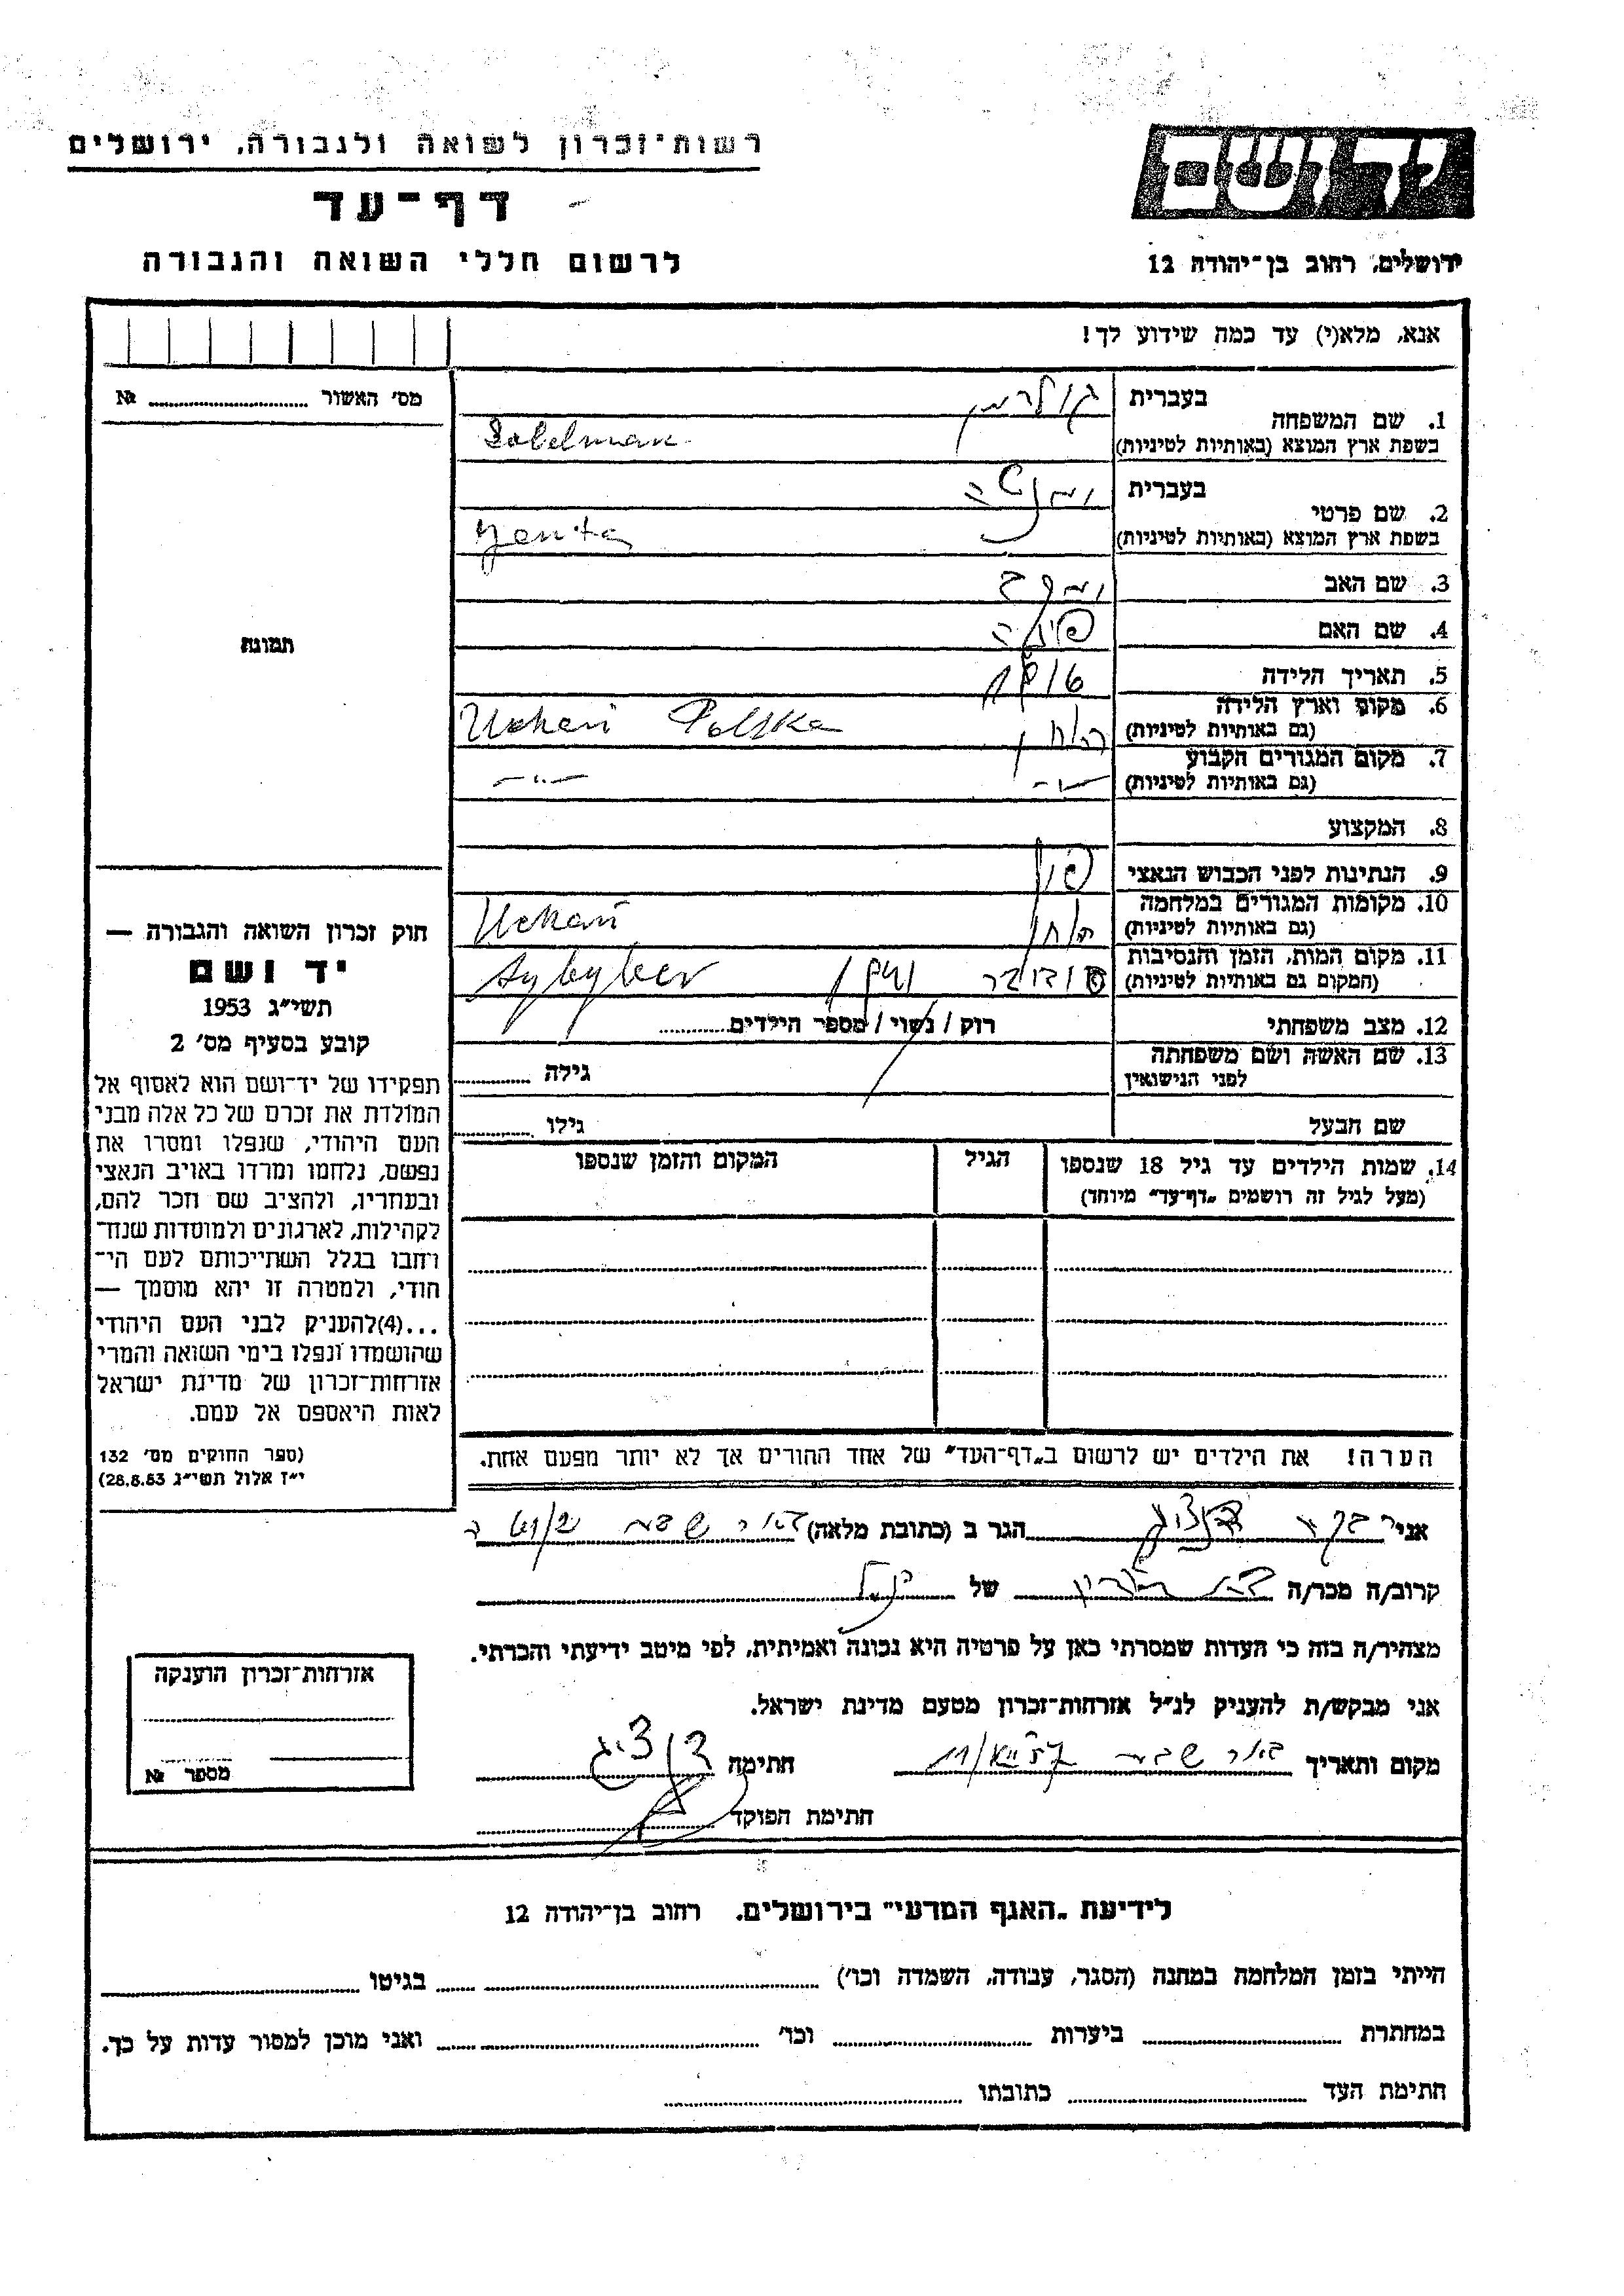 רשות־זכרון לשואה ולגבורה, ירושלים
דף־עד
לרשום חללי השואה והגבורה
יד ושם
ירושלים, רחוב בן־יהודה 12
אנא, מלא(י) עד כמה שידוע לך!
מס׳ האשור № 
1. שם המשפחה בעברית
בשפת ארץ המוצא (באותיות לטיניות)
2. שם פרטי בעברית
בשפת ארץ המוצא (באותיות לטיניות) Jenta
3. שם האב
4. שם האם
5. תאריך הלידה
6. מקום וארץ הלידה
(גם באותיות לטיניות) Uchań Polska
7. מקום המגורים הקבוע
(גם באותיות לטיניות) —״— —״—
8. המקצוע
9. הנתינות לפני הכבוש הנאצי
10. מקומות המגורים במלחמה
(גם באותיות לטיניות) Uchań
11. מקום המות, הזמן והנסיבות
(המקום גם באותיות לטיניות) סוביבר
12. מצב משפחתי רוק / נשוי / מספר הילדים
13. שם האשה ושם משפחתה
לפני הנישואין גילה
שם הבעל גילו
14. שמות הילדים עד גיל 18 שנספו הגיל המקום והזמן שנספו
(מעל לגיל זה רושמים „דף־עד” מיוחד)
הערה! את הילדים יש לרשום ב„דף־העד” של אחד ההורים אך לא יותר מפעם אחת.
תמונה
חוק זכרון השואה והגבורה —
יד ושם
תשי״ג 1953
קובע בסעיף מס׳ 2
תפקידו של יד־ושם הוא לאסוף אל
המולדת את זכרם של כל אלה מבני
העם היהודי, שנפלו ומסרו את
נפשם, נלחמו ומרדו באויב הנאצי
ובעוזריו, ולהציב שם וזכר להם,
לקהילות, לארגונים ולמוסדות שנח־
רבו בגלל השתייכותם לעם הי־
הודי, ולמטרה זו יהא מוסמך —
...(4)להעניק לבני העם היהודי
שהושמדו ונפלו בימי השואה והמרי
אזרחות־זכרון של מדינת ישראל
לאות היאספם אל עמם.
(ספר החוקים מס׳ 132
י״ז אלול תשי״ג 28.8.53)
אני רבקה דנציג הגר ב (כתובת מלאה) באר שבע
קרוב/ה מכר/ה של
מצהיר/ה בזה כי העדות שמסרתי כאן על פרטיה היא נכונה ואמיתית, לפי מיטב ידיעתי והכרתי.
אני מבקש/ת להעניק לנ״ל אזרחות־זכרון מטעם מדינת ישראל.
מקום ותאריך באר שבע חתימה דנציג
חתימת הפוקד
אזרחות־זכרון הוענקה
מספר №
לידיעת „האגף המדעי” בירושלים, רחוב בן־יהודה 12
הייתי בזמן המלחמה במחנה (הסגר, עבודה, השמדה וכו׳) בגיטו
במחתרת ביערות וכו׳ ואני מוכן למסור עדות על כך.
חתימת העד כתובתו